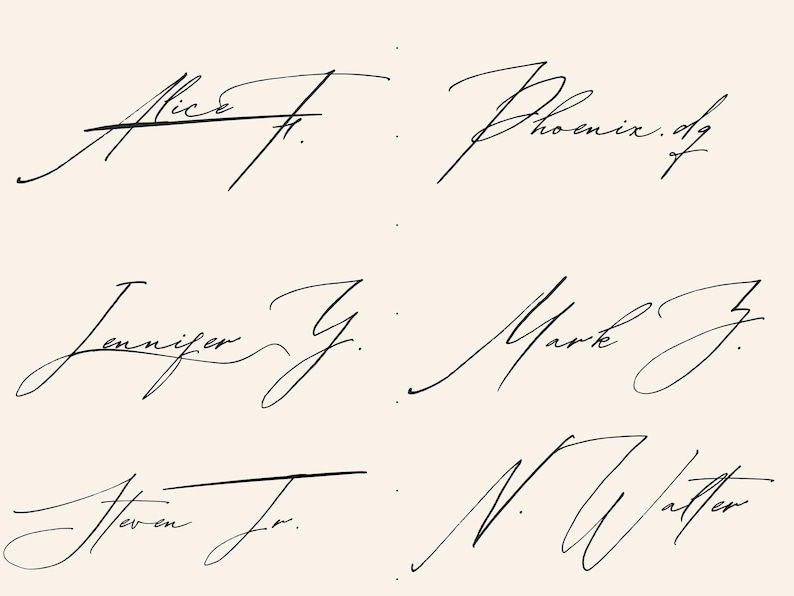 Alice F.
Phoenix.dg
Jennifer Y.
Mark Z.
Steven Jr.
N. Walter